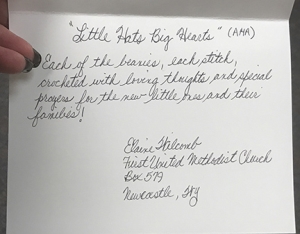 "Little Hats Big Hearts" (AHA)
Each of the beanies, each stitch,
crocheted with loving thoughts and special
prayers for the new little ones and their
families!
Elaine Holcomb
First United Methodist Church
Box 579
Newcastle, Wy